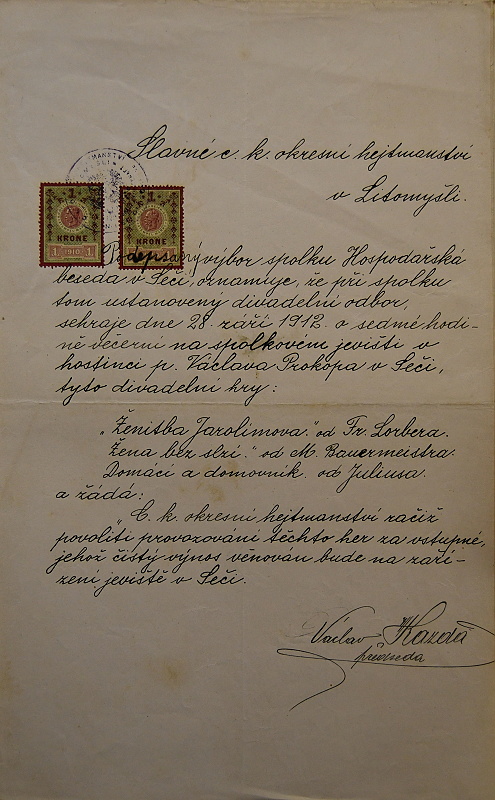 Slavné c. k. okresní hejtmanství
v Litomyšli.
1
KRONE
1 1910 1
1
KRONE
1 1910 1
Podepsaný výbor spolku Hospodářská
beseda v Seči, oznamuje, že při spolku
tom ustanovený divadelní odbor,
sehraje dne 28. září 1912 o sedmé hodi-
ně večerní na spolkovém jevišti v
hostinci p. Václava Prokopa v Seči,
tyto divadelní hry:
„Ženitba Jarolimova." od Fr. Lorbera.
Žena bez slzí." od M. Bauermeistra.
Domácí a domovník. od Juliusa.
a žádá:
„C. k. okresní hejtmanství račiž
povoliti provozování těchto her za vstupné,
jehož čistý výnos věnován bude na zaří-
zení jeviště v Seči.
Václav Kazda
předseda